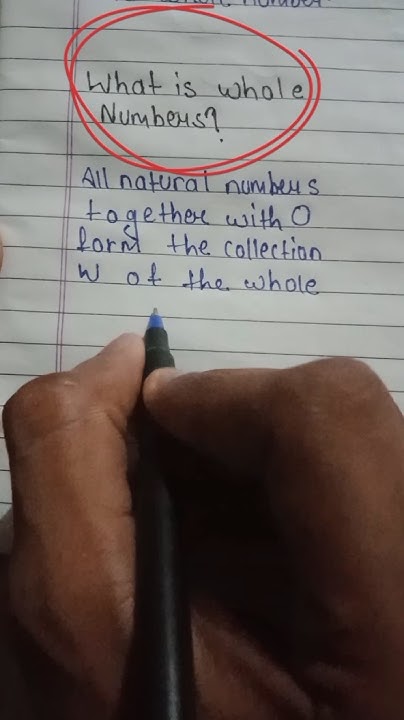 What is whole
Numbers?
All natural numbers
together with 0
form the collection
W of the whole